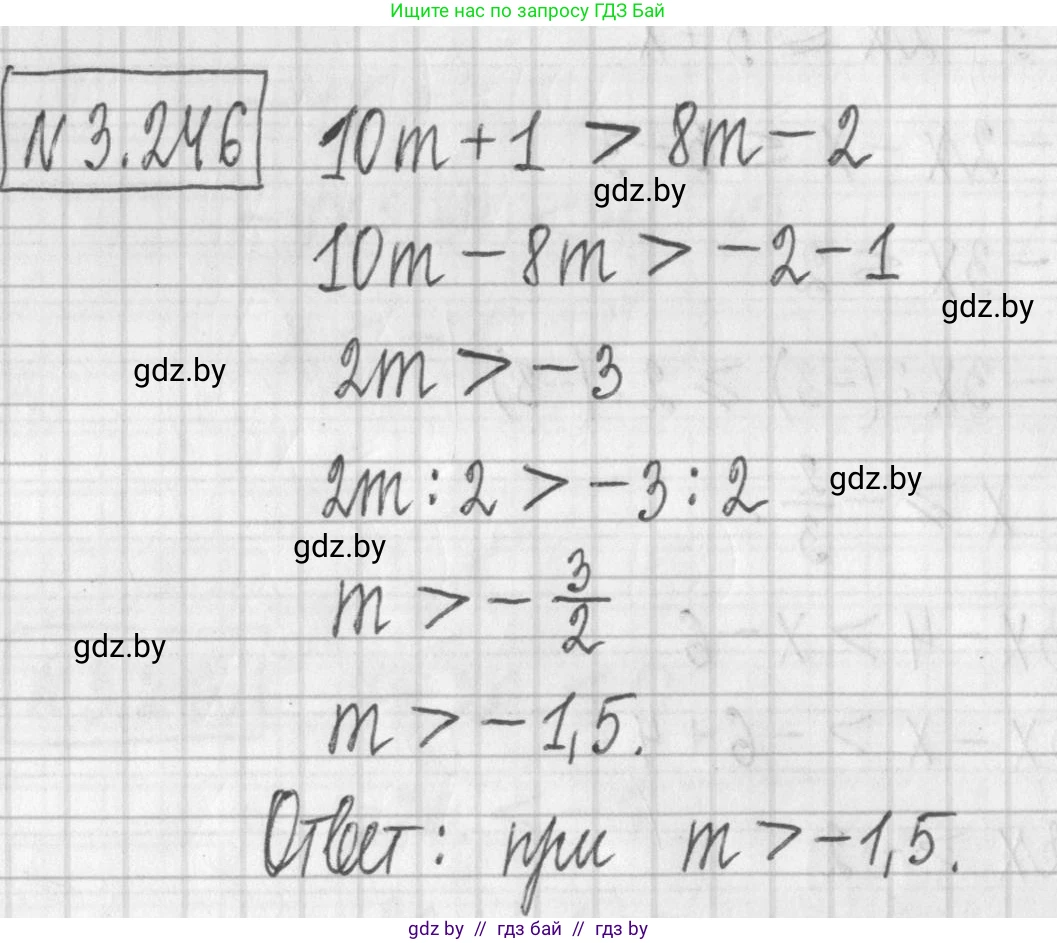 Ищите нас по запросу ГДЗ Бай
N 3.246 10m + 1 > 8m - 2
gdz.by
10m - 8m > -2 - 1
gdz.by
2m > -3
gdz.by
2m : 2 > -3 : 2
gdz.by
gdz.by
m > - 3/2
gdz.by
m > -1,5.
Ответ: при m > -1,5.
gdz by // гдз бай // гдз by